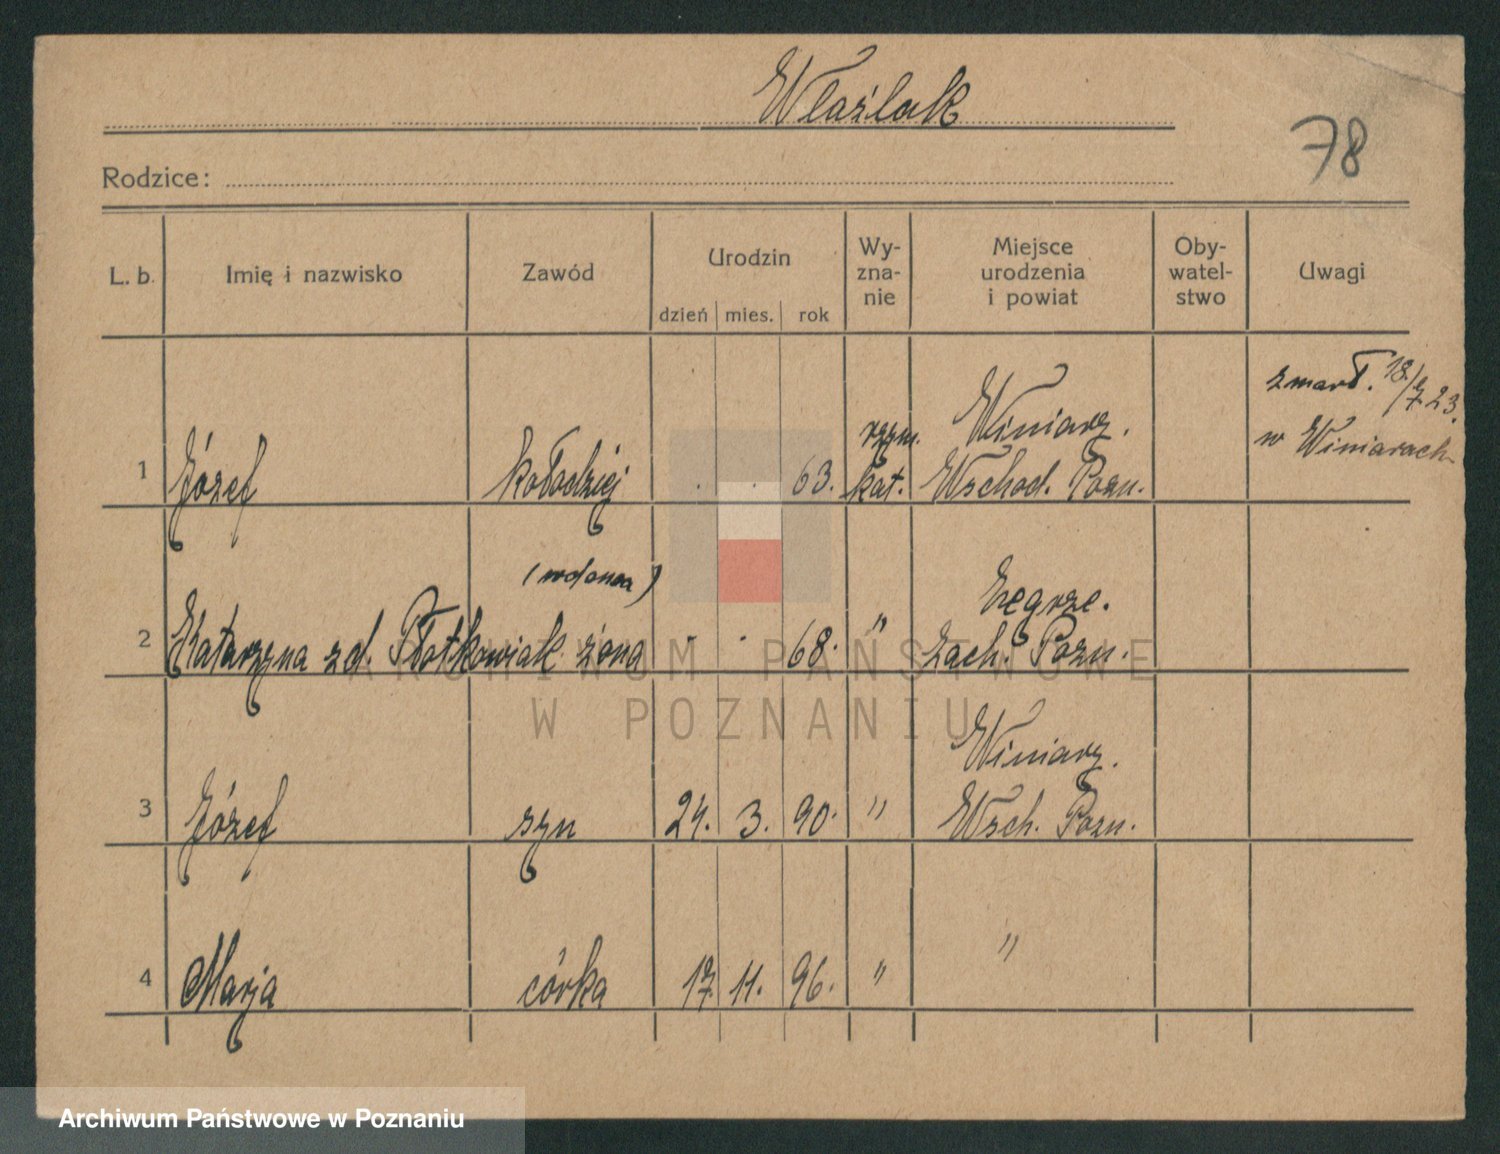 Właźlak
78
Rodzice:
L. b. Imię i nazwisko Zawód Urodzin dzień mies. rok Wy-zna-nie Miejsce urodzenia i powiat Oby-watel-stwo Uwagi
1 Józef kołodziej . . 63. rzym. kat. Winiary. Wschod. Pozn. zmarł. 18/7. 23. w Winiarach
(wdowa)
2 Katarzyna zd. Płotkowiak żona . . 68. " Żegrze. Zach. Pozn.
3 Józef syn 24. 3. 90. " Winiary. Wsch. Pozn.
4 Marja córka 17. 11. 96. " "
ARCHIWUM PAŃSTWOWE
W POZNANIU
Archiwum Państwowe w Poznaniu